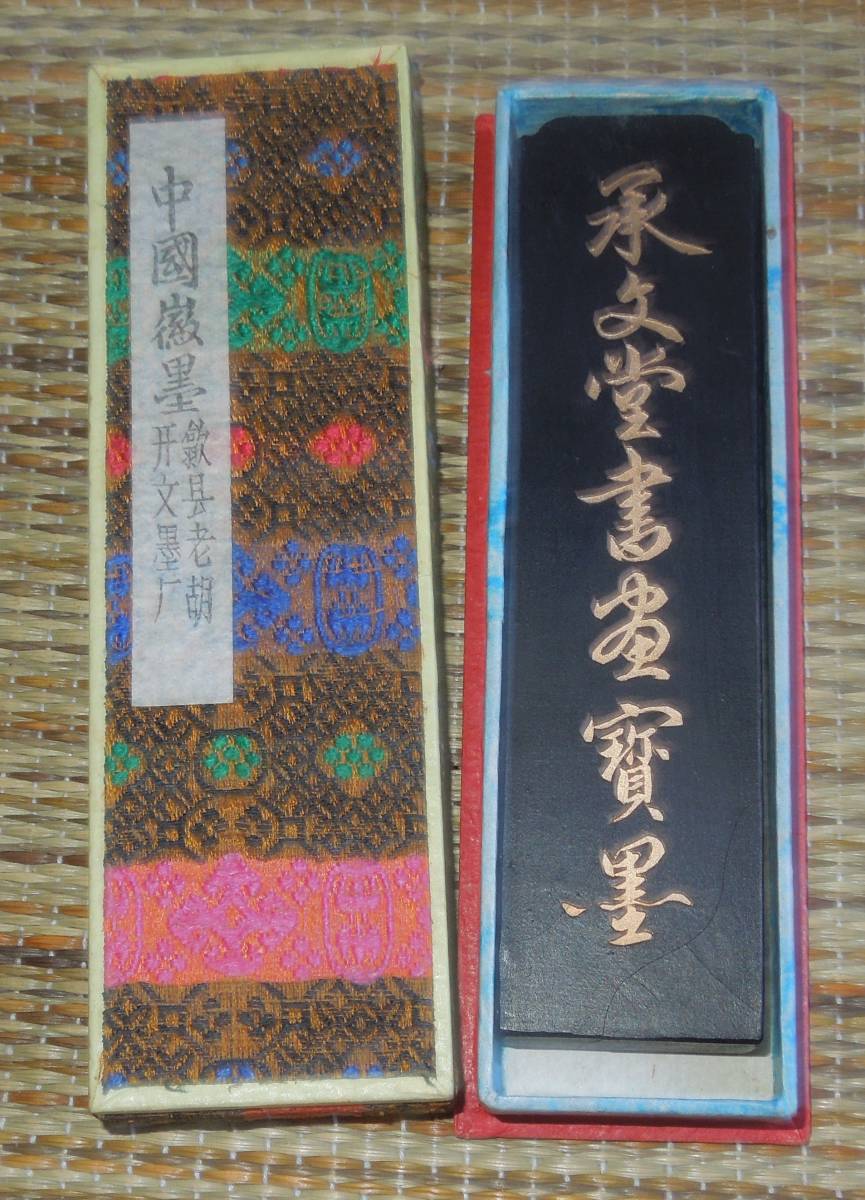 中國徽墨
歙县老胡
开文墨厂
承文堂書画寶墨